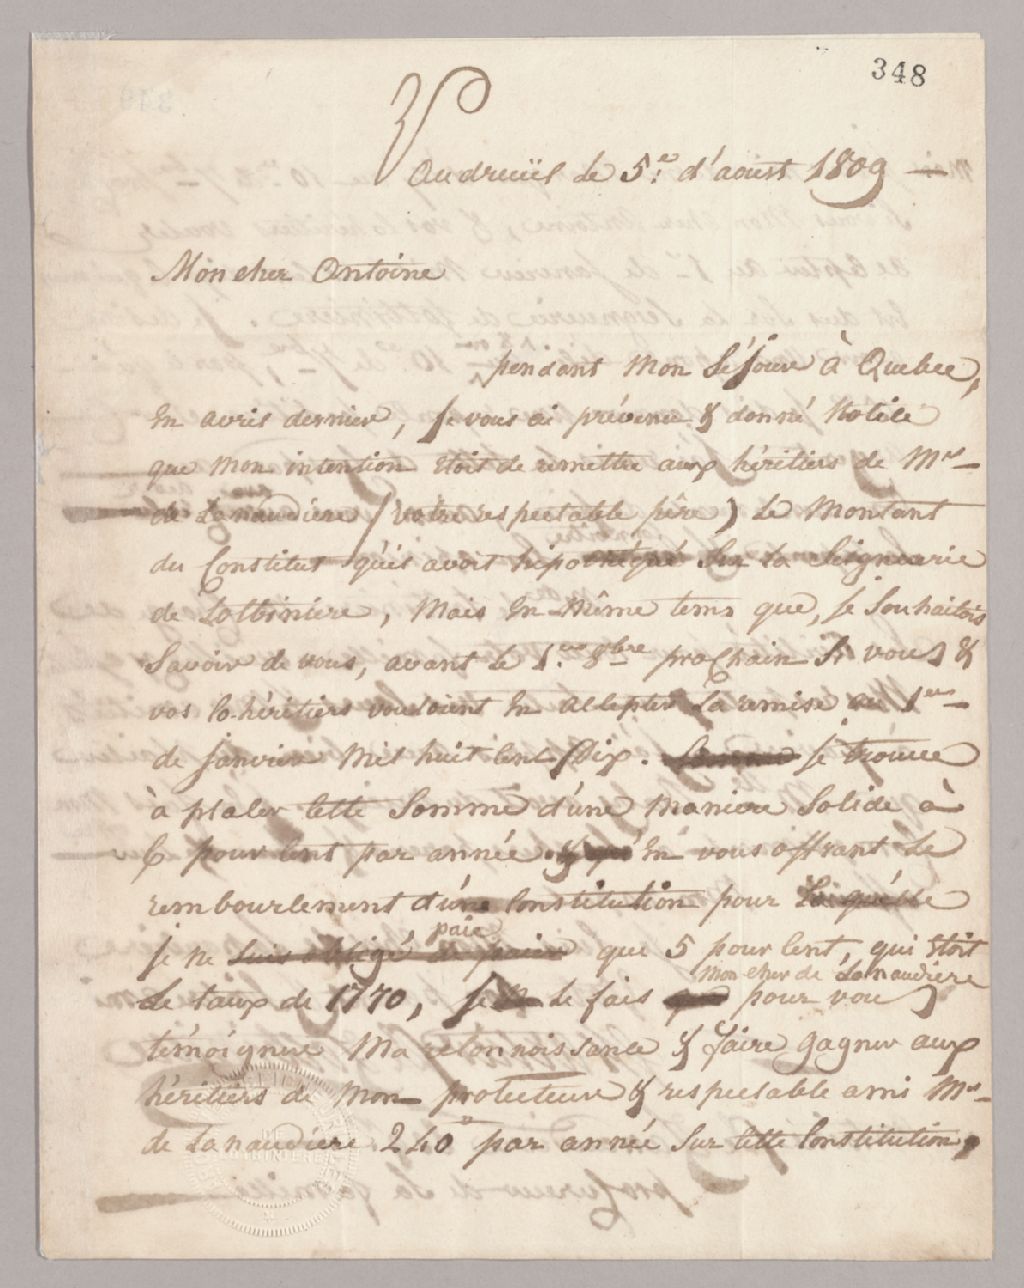 348
Vaudreüil le 5.e d'aoust 1809
Mon cher Antoine
pendant mon séjour à Quebec,
En avril dernier, je vous ai prévenu & donné notice
que mon intention étoit de remettre aux héritiers de Mr
de Lanaudiere (votre respectable père) le montant
du Constitut qu'il avoit hipothéqué sur la Seigneurie
de Lotbiniere, mais En même tems que, je souhaitois
savoir de vous, avant le 1.er 8bre prochain si vous &
vos co-héritiers vouloient En accepter la remise au 1er
de janvier mil huit cent Dix. je trouve
à placer cette somme d'une maniere solide à
6 pour cent par année En vous offrant le
remboursement d'une Constitution pour laquelle
je ne suis obligé de paier paie que 5 pour cent, qui étoit
mon cher de Lanaudiere
le taux de 1770, je le fais pour vous
témoigner ma reconnoissance & faire gagner aux
héritiers de mon protecteur & respectable ami Mr
de Lanaudiere 240 par année sur cette Constitution,